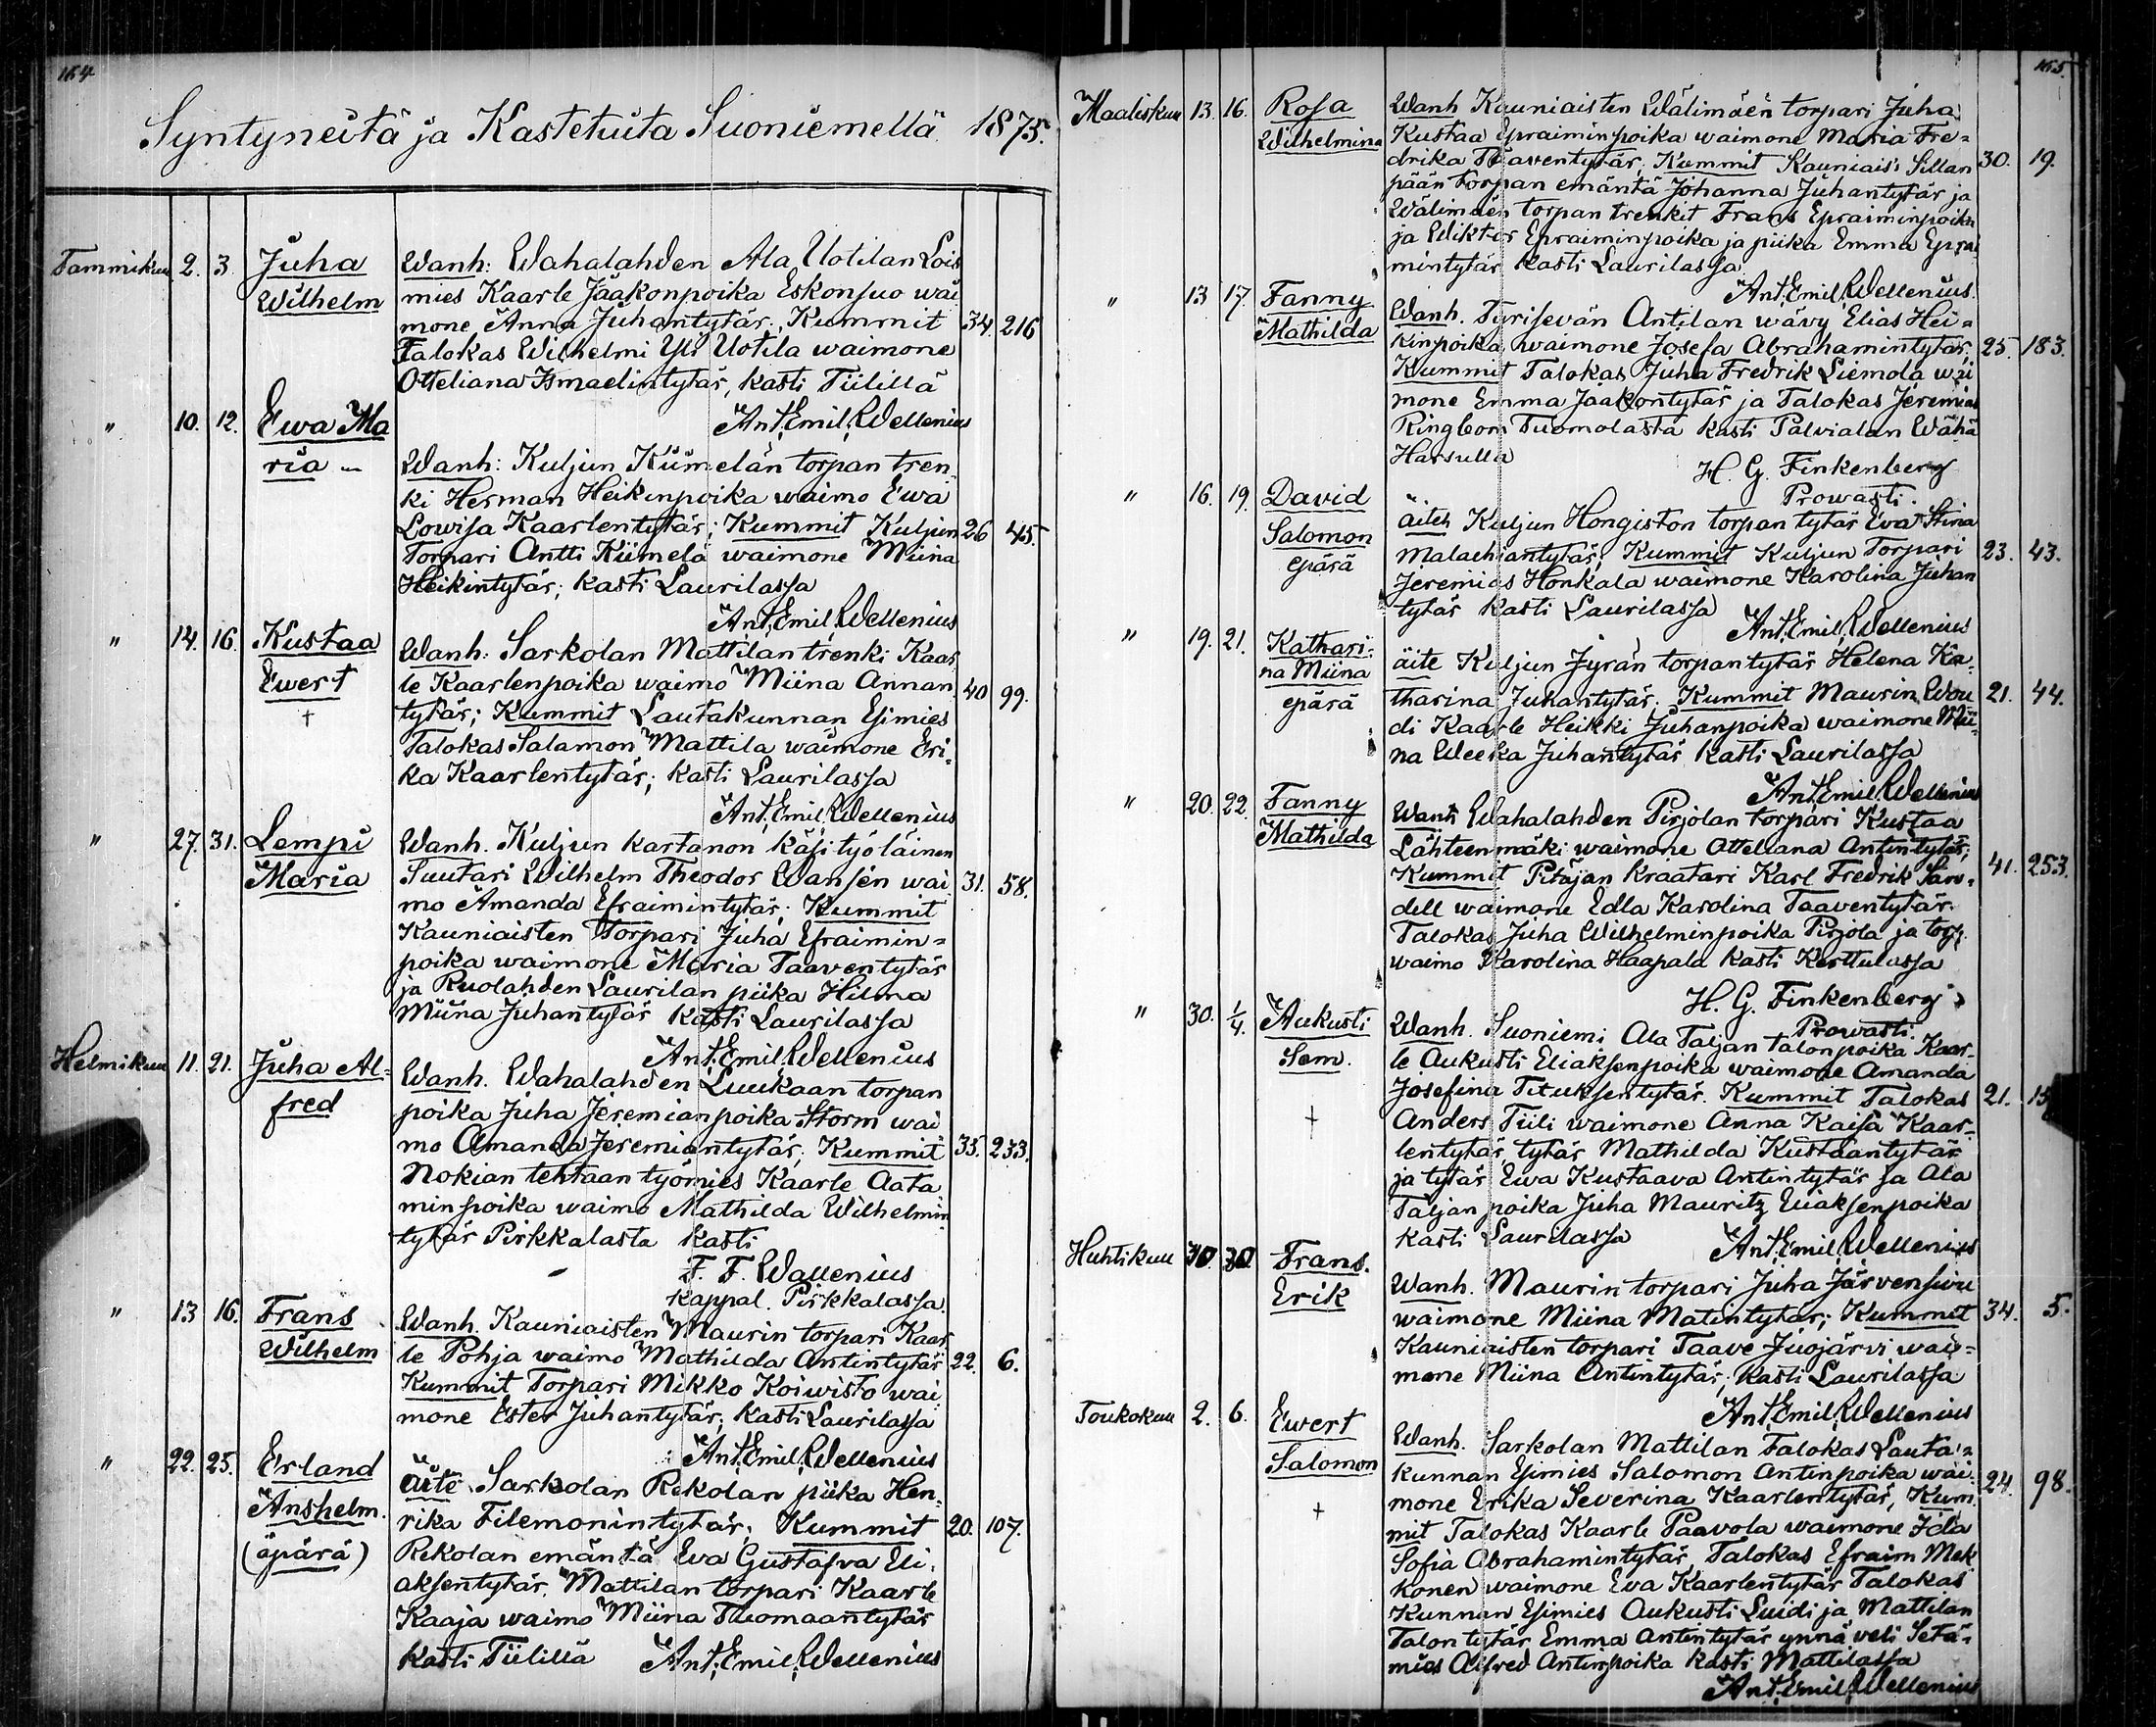 164
Syntyneitä ja Kastetuita Suoniemellä 1875.
Tammikuu 2. 3. Juha Wanh: Wahalahden Ala Uotilan Lois
Wilhelm mies Kaarle Jaakonpoika Eskonsuo wai
mone Anna Juhantytär, Kummit 34. 216
Talokas Wilhelmi Yli Uotila waimone
Otteliana Ismaelintytär, kasti Tiilillä
" 10. 12. Ewa Ma Ant. Emil. Wellenius
ria Wanh: Kuljun Kiimelän torpan tren
ki Herman Heikinpoika waimo Ewa
Lowisa Kaarlentytär; Kummit Kuljun 26 45.
Torpari Antti Kiimelä waimone Miina
Heikintytär; kasti Laurilassa
Ant. Emil. Wellenius
" 14. 16. Kustaa Wanh: Sarkolan Mattilan trenki Kaar
Ewert le Kaarlenpoika waimo Miina Annan 40 99.
† tytär; Kummit Lautakunnan Esimies
Talokas Salamon Mattila waimone Eri-
ka Kaarlentytär; kasti Laurilassa
Ant. Emil. Wellenius
" 27. 31. Lempi Wanh. Kuljun kartanon käsityöläinen
Maria Suutari Wilhelm Theodor Wansén wai 31. 58.
mo Amanda Efraimintytär; Kummit
Kauniaisten Torpari Juha Efraimin=
poika waimone Maria Taaventytär
ja Ruolahden Laurilan piika Hilma
Miina Juhantytär kasti Laurilassa
Ant. Emil. Wellenius
Helmikuu 11. 21. Juha Al= Wanh. Wahalahden Luukaan torpan
fred poika Juha Jeremianpoika Storm wai
mo Amanda Jeremiantytär; Kummit 35. 233.
Nokian tehtaan työmies Kaarle Aata
minpoika waimo Mathilda Wilhelmin
tytär Pirkkalasta kasti
F. F. Wallenius
Kappal. Pirkkalassa.
" 13 16. Frans Wanh. Kauniaisten Maurin torpari Kaar
Wilhelm le Pohja waimo Mathilda Antintytär 22. 6.
Kummit Torpari Mikko Koiwisto wai
mone Ester Juhantytär; kasti Laurilassa
Ant. Emil. Wellenius
" 22. 25. Erland äite Sarkolan Rekolan piika Hen
Anshelm. rika Filemonintytär; Kummit 20. 107.
(äpärä) Rekolan emäntä Eva Gustafva Eli-
aksentytär, Mattilan torpari Kaarle
Kaaja waimo Miina Thomaantytär
kasti Tiilillä Ant. Emil. Wellenius
165.
Maaliskuu 13. 16. Rosa Wanh Kauniaisten Wälimäen torpari Juha
Wilhelmina Kustaa Epraiminpoika waimone Maria Fre=
drika Taaventytär; Kummit Kauniais: Sillan 30. 19.
pään torpan emäntä Johanna Juhantytär ja
Wälimäen torpan trenkit Frans Epraiminpoika
ja Wiktor Epraiminpoika ja piika Emma Eprai
mintytär kasti Laurilassa
Ant. Emil. Wellenius.
" 13 17. Fanny Wanh. Tyrisevän Antilan wävy Elias Hei=
Mathilda kinpoika waimone Josefa Abrahamintytär; 25. 183.
Kummit Talokas Juha Fredrik Liemola wai
mone Emma Jaakontytär ja Talokas Jeremias
Ringbom Tuomolasta kasti Palvialan Wähä
Harsulla H. G. Finkenberg
Prowasti.
" 16. 19. David äiteh Kuljun Hongiston torpan tytär Eva Stina
Salomon Malachiantytär; Kummit Kuljun Torpari 23. 43.
epärä Jeremias Honkala waimone Karolina Juhan
tytär kasti Laurilassa Ant. Emil. Wellenius
" 19. 21. Kathari= äite Kuljun Jyrän torpan tytär Helena Ka-
na Miina tharina Juhantytär. Kummit Maurin Wou 21. 44.
epärä di Kaarle Heikki Juhanpoika waimone Mii-
na Weeka Juhantytär kasti Laurilassa
Ant. Emil. Wellenius
" 20. 22. Fanny Wanh Wahalahden Pirjolan torpari Kustaa
Mathilda Lähteenmäki waimone Otteliana Antintytär;
Kummit Pitäjän Kraatari Karl Fredrik San= 41. 253.
dell waimone Edla Karolina Taaventytär.
Talokas Juha Wilhelminpoika Pirjola ja torp.
waimo Karolina Haapala kasti Kerttulassa
H. G. Finkenberg
Prowasti.
" 30. 1/4. Aukusti Wanh. Suoniemi Ala Taljan talonpoika Kaar-
Sem. le Aukusti Eliaksenpoika waimone Amanda
Josefina Tituksentytär. Kummit Talokas 21.
† Anders Tiili waimone Anna Kaisa Kaar-
lentytär, tytär Mathilda Kustaantytär
ja tytär Ewa Kustaava Antintytär ja Ala
Taljan poika Juha Mauritz Eliaksenpoika
kasti Laurilassa Ant. Emil. Wellenius
Huhtikuu 30 30 Frans. Wanh. Maurin torpari Juha Järvensivu
Erik waimone Miina Matintytär; Kummit 34. 5.
Kauniaisten torpari Taave Juojärvi wai=
mone Miina Antintytär; kasti Laurilassa
Ant. Emil. Wellenius
Toukokuu 2. 6. Ewert Wanh. Sarkolan Mattilan Talokas Lauta=
Salomon kunnan Esimies Salomon Antinpoika wai- 24. 98.
† mone Erika Severina Kaarlentytär, Kum
mit Talokas Kaarle Paavola waimone Ida
Sofia Abrahamintytär, Talokas Efraim Mek
konen waimone Eva Kaarlentytär Talokas
Kunnan Esimies Aukusti Luidi ja Mattilan
Talon tytär Emma Antintytär ynnä veli Setä=
mies Alfred Antinpoika kasti Mattilassa
Ant. Emil. Wellenius